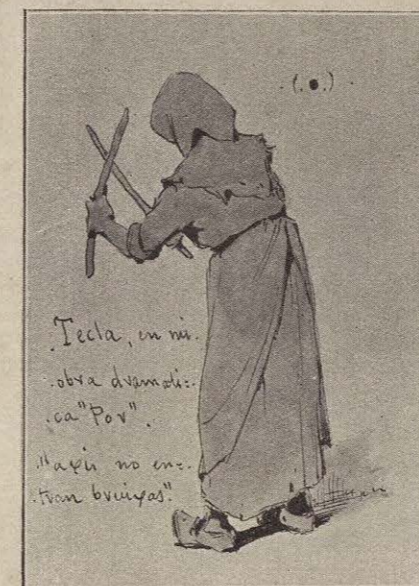 Tecla, en mi.
.obra dramati:.
.ca "Por".
"axis no en=.
.tran bruixas".